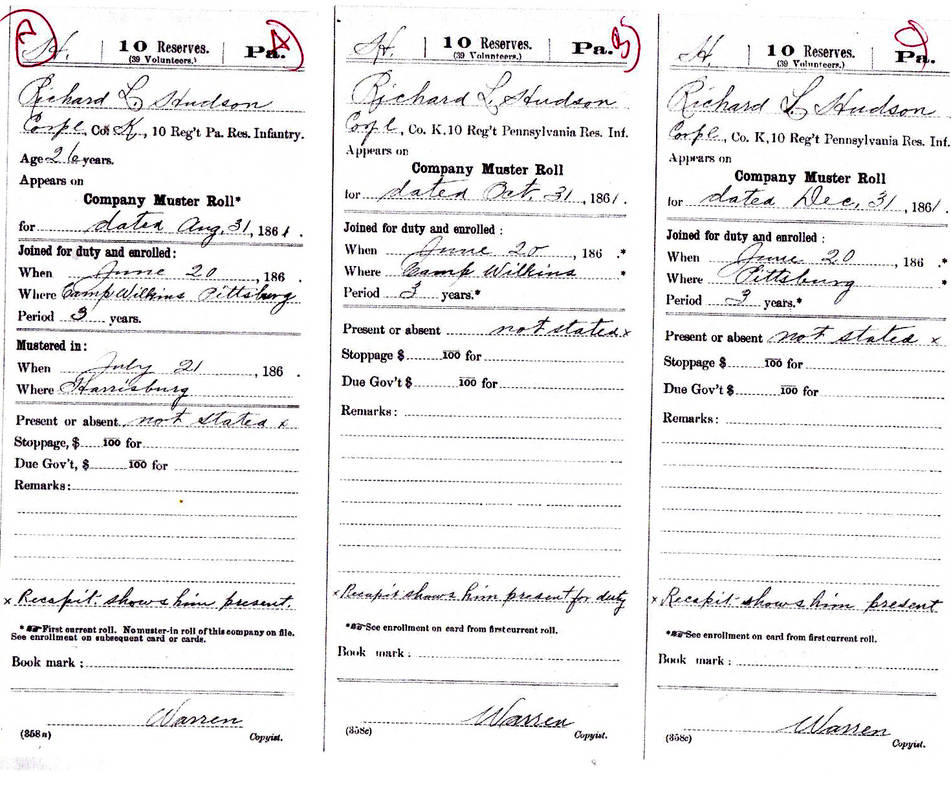 H. | 10 Reserves. | Pa.
(39 Volunteers.)
Richard L. Hudson
Corpl, Co. K., 10 Reg't Pa. Res. Infantry.
Age 26 years.
Appears on
Company Muster Roll*
for dated Aug. 31, 1861.
Joined for duty and enrolled:
When June 20, 186 .
Where Camp Wilkins Pittsburg
Period 3 years.
Mustered in:
When July 21, 186 .
Where Harrisburg
Present or absent not stated x
Stoppage, $ 100 for
Due Gov't, $ 100 for
Remarks:
x Recapit. shows him present.
* First current roll. No muster-in roll of this company on file.
See enrollment on subsequent card or cards.
Book mark:
Warren
(358a) Copyist.
H. | 10 Reserves. | Pa.
(39 Volunteers.)
Richard L. Hudson
Corpl, Co. K, 10 Reg't Pennsylvania Res. Inf.
Appears on
Company Muster Roll
for dated Oct. 31, 1861.
Joined for duty and enrolled:
When June 20 186 .*
Where Camp Wilkins *
Period 3 years.*
Present or absent not stated x
Stoppage $ 100 for
Due Gov't $ 100 for
Remarks:
x Recapit shows him present for duty
* See enrollment on card from first current roll.
Book mark:
Warren
(358c) Copyist.
H. | 10 Reserves. | Pa.
(39 Volunteers.)
Richard L. Hudson
Corpl, Co. K, 10 Reg't Pennsylvania Res. Inf.
Appears on
Company Muster Roll
for dated Dec. 31, 1861.
Joined for duty and enrolled:
When June 20, 186 .*
Where Pittsburg *
Period 3 years.*
Present or absent not stated x
Stoppage $ 100 for
Due Gov't $ 100 for
Remarks:
x Recapit shows him present
* See enrollment on card from first current roll.
Book mark:
Warren
(358c) Copyist.